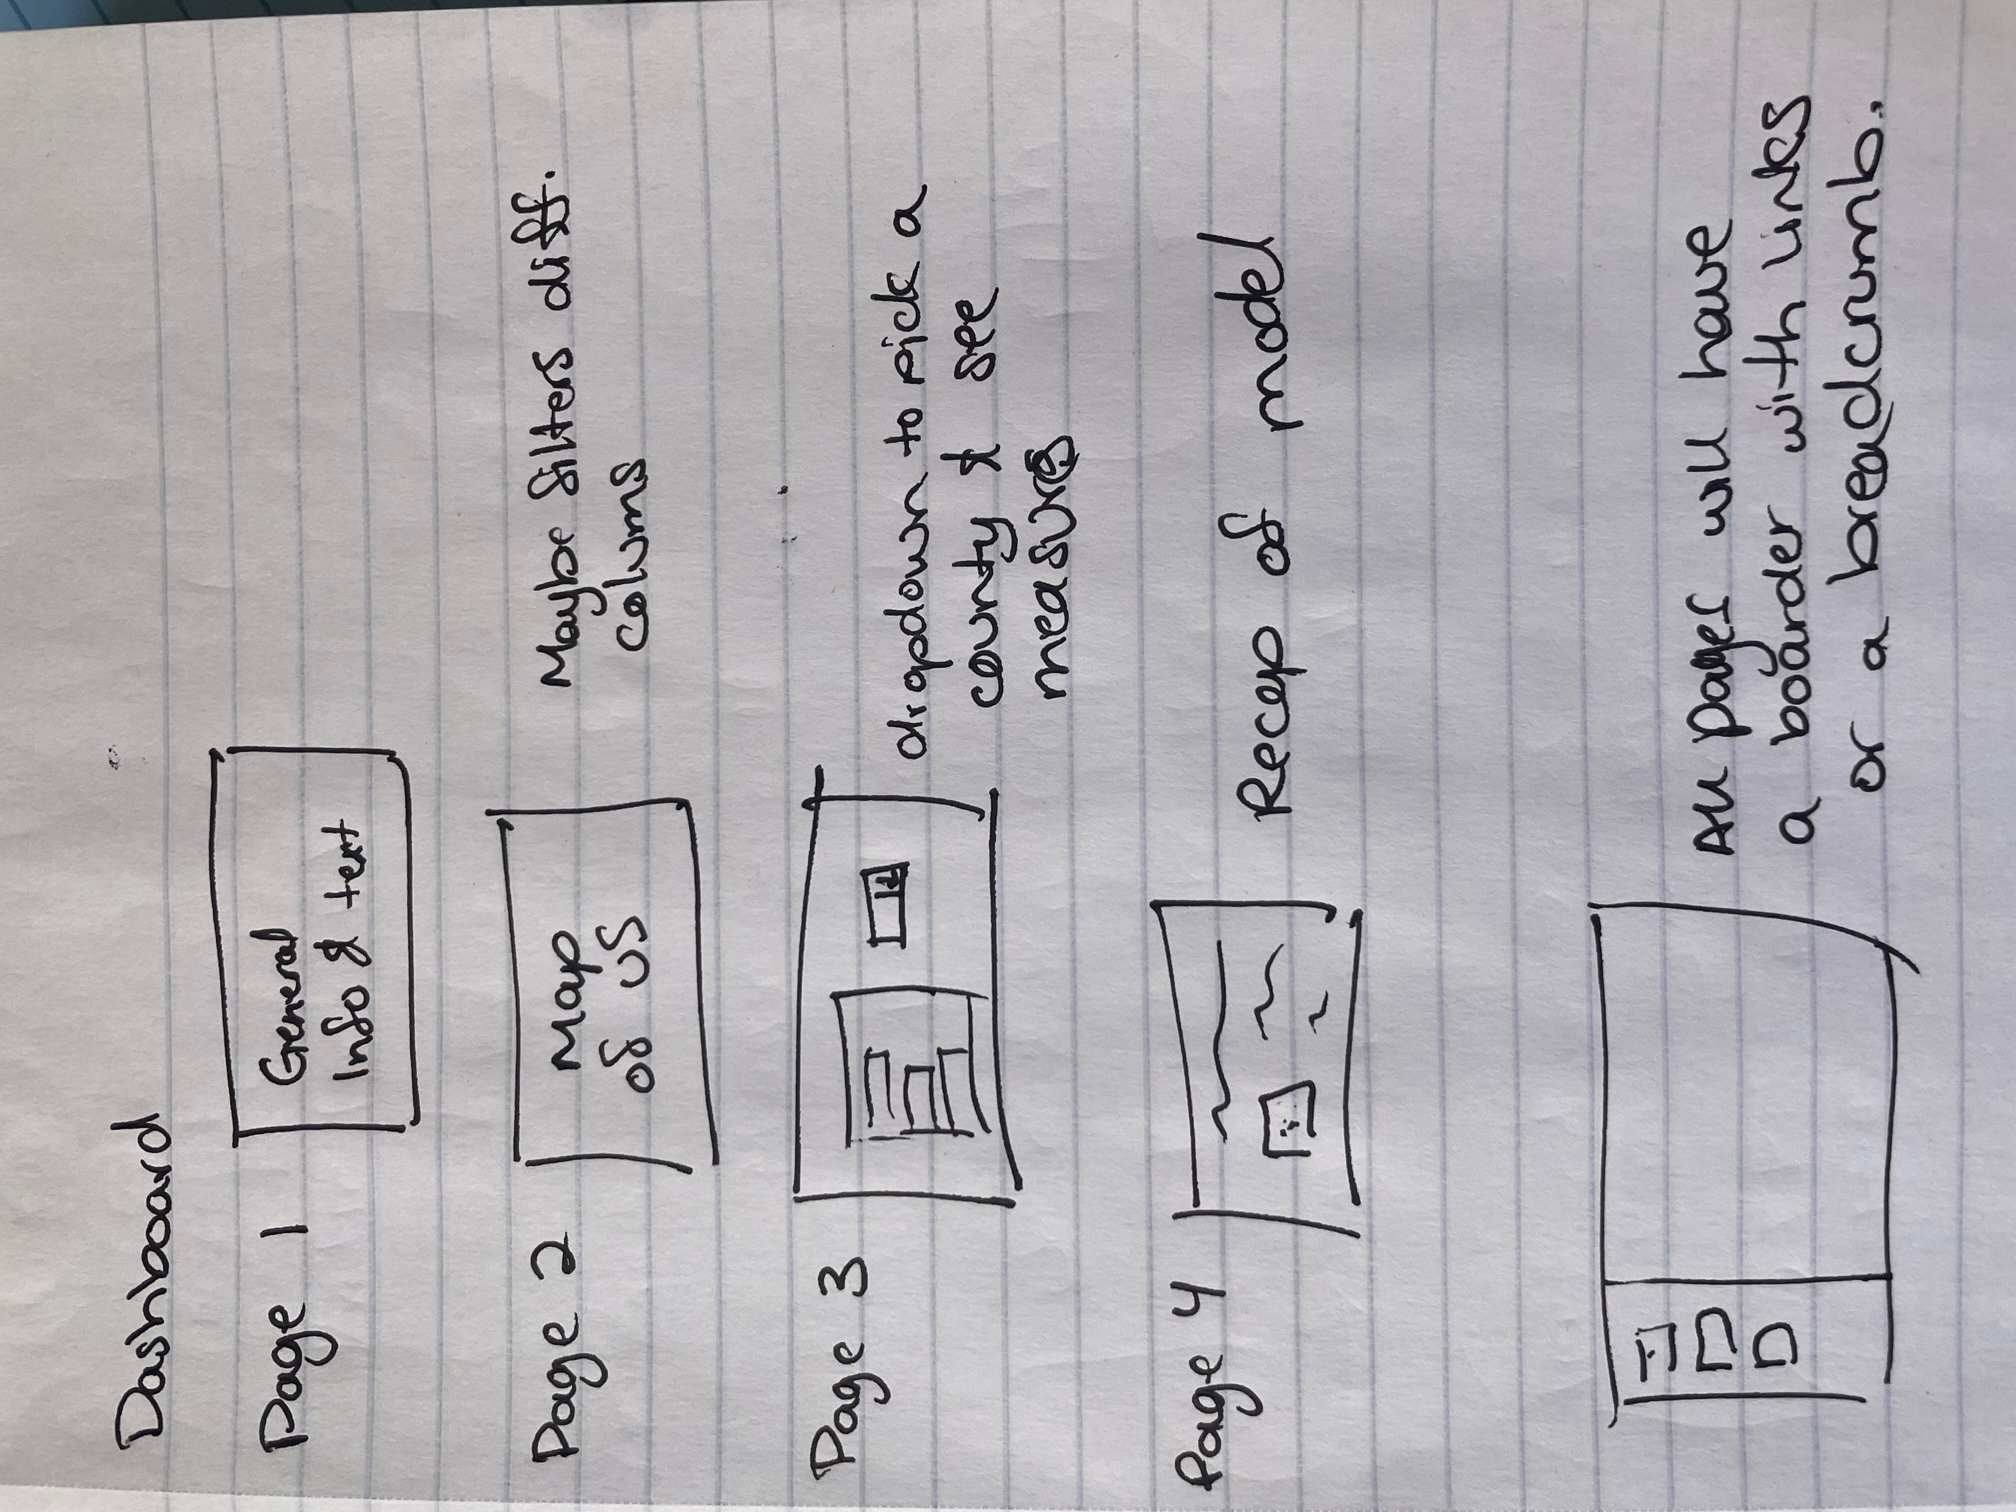 Dashboard
Page 1
General
Info & text
Page 2
Map
of US
Maybe filters diff.
colums
Page 3
dropdown to pick a
county & see
measures
Page 4
Recap of model
All pages will have
a boarder with links
or a breadcrumb.